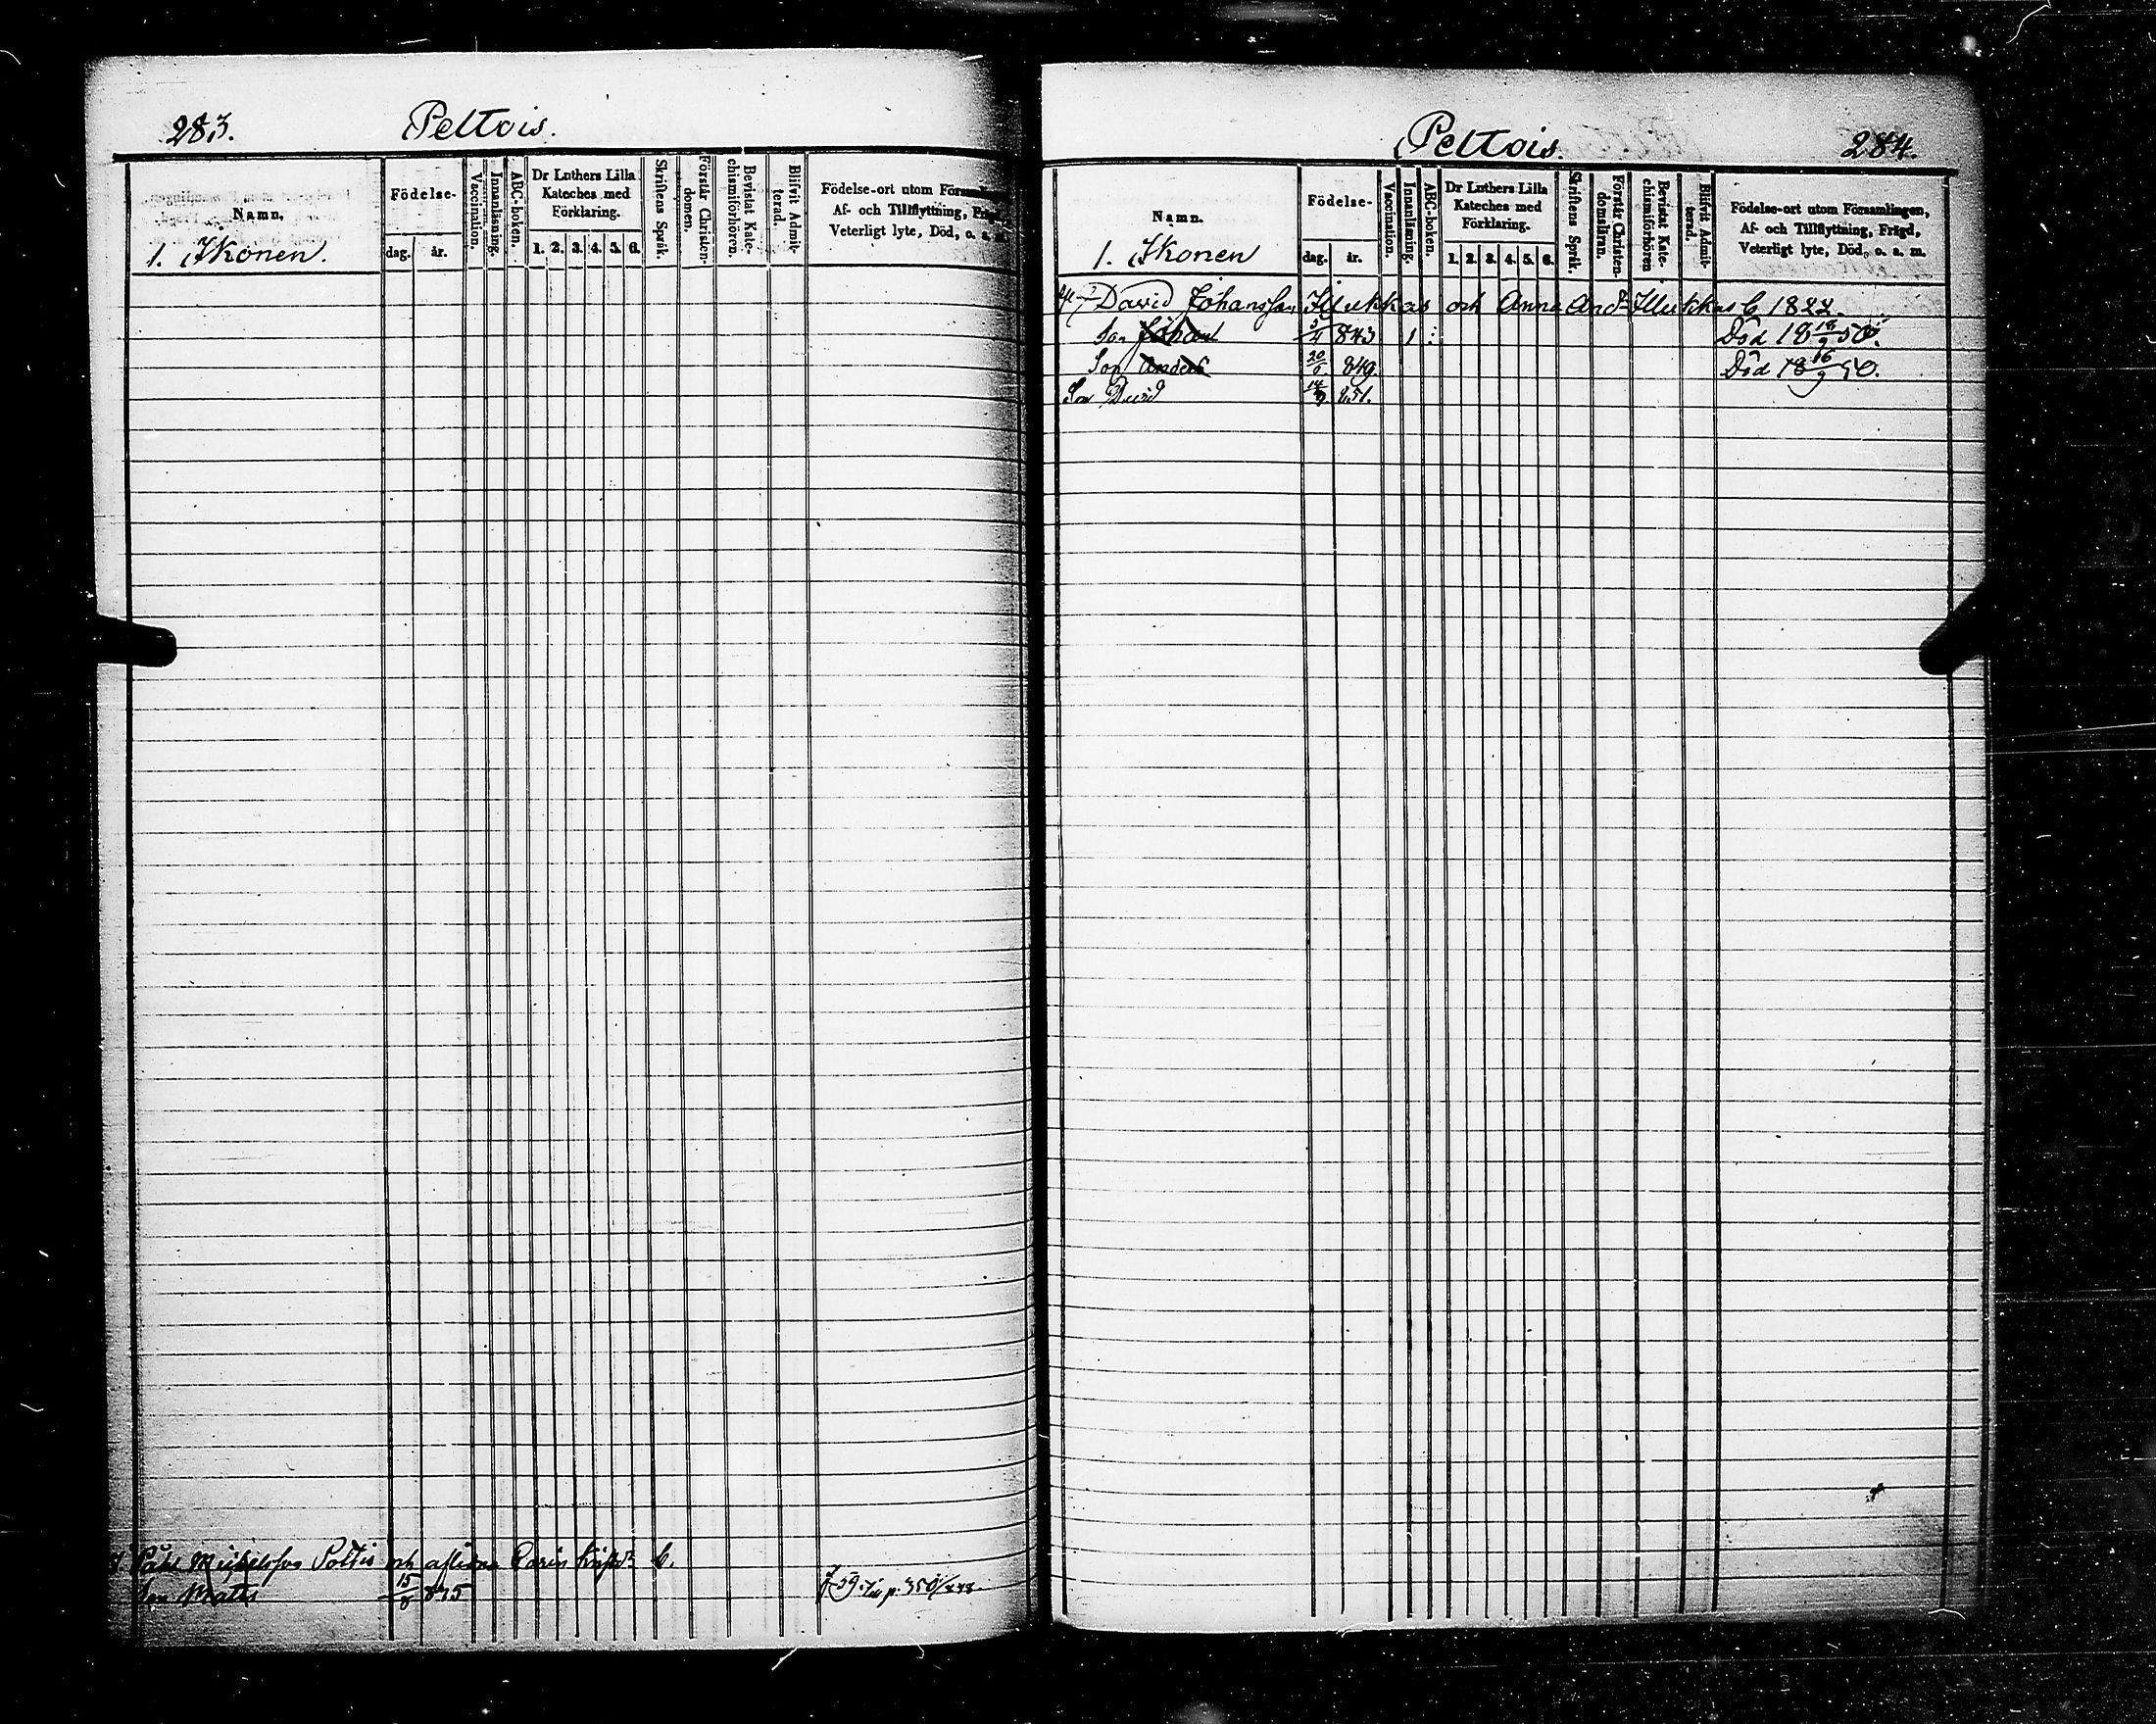 283. Peltois.
Namn.
Födelse-
dag. år.
Vaccination.
Innanläsning.
ABC-boken.
Dr Luthers Lilla
Kateches med
Förklaring.
1. 2. 3. 4. 5. 6.
Skriftens Språk.
Förstår Christen-
domen.
Bevistat Kate-
chismiförhören.
Blifvit Admit-
terad.
Födelse-ort utom
Af- och Tillflyttning,
Veterligt lyte, Död, o. a. m.
1. Ikonen.
Son Mats 15/8 845
Peltois. 284.
Namn.
Födelse-
dag. år.
Vaccination.
Innanläsning.
ABC-boken.
Dr Luthers Lilla
Kateches med
Förklaring.
1. 2. 3. 4. 5. 6.
Skriftens Språk.
Förstår Christen-
domsläran.
Bevistat Kate-
chismiförhören
Blifvit Admit-
terad.
Födelse-ort utom Församlingen,
Af- och Tillflyttning, Frägd,
Veterligt lyte, Död, o. a. m.
1. Ikonen
David Johansson Illukkas och Anna And Illukkas C 1822.
Son Johan 5/4 843 1 Död 18 18/9 50.
Son Anders 20/6 849. Död 18 16/9 50.
Son David 14/9 851.